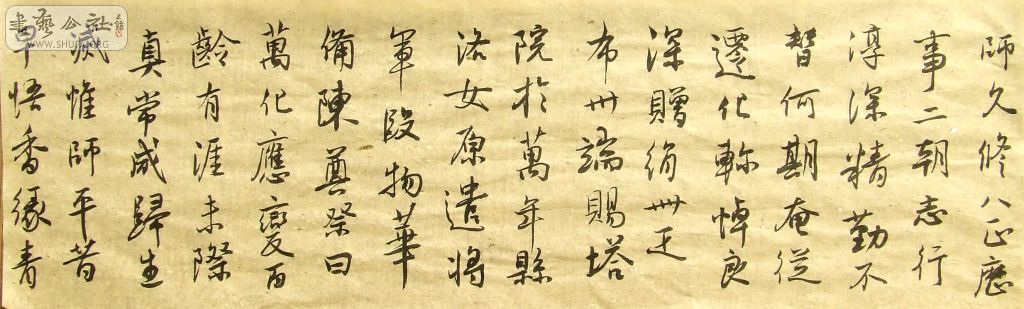 師久修八正歷
事二朝志行
淳深精勤不
替何期奄從
遷化軫悼良
深贈絹卌疋
布卅端賜塔
院於萬年縣
洛女原遣將
軍段物華
備陳奠祭曰
萬化應變百
齡有涯未際
真常咸歸生
滅惟師平昔
早悟香緣青
書藝公社
WWW.SHUFA.ORG